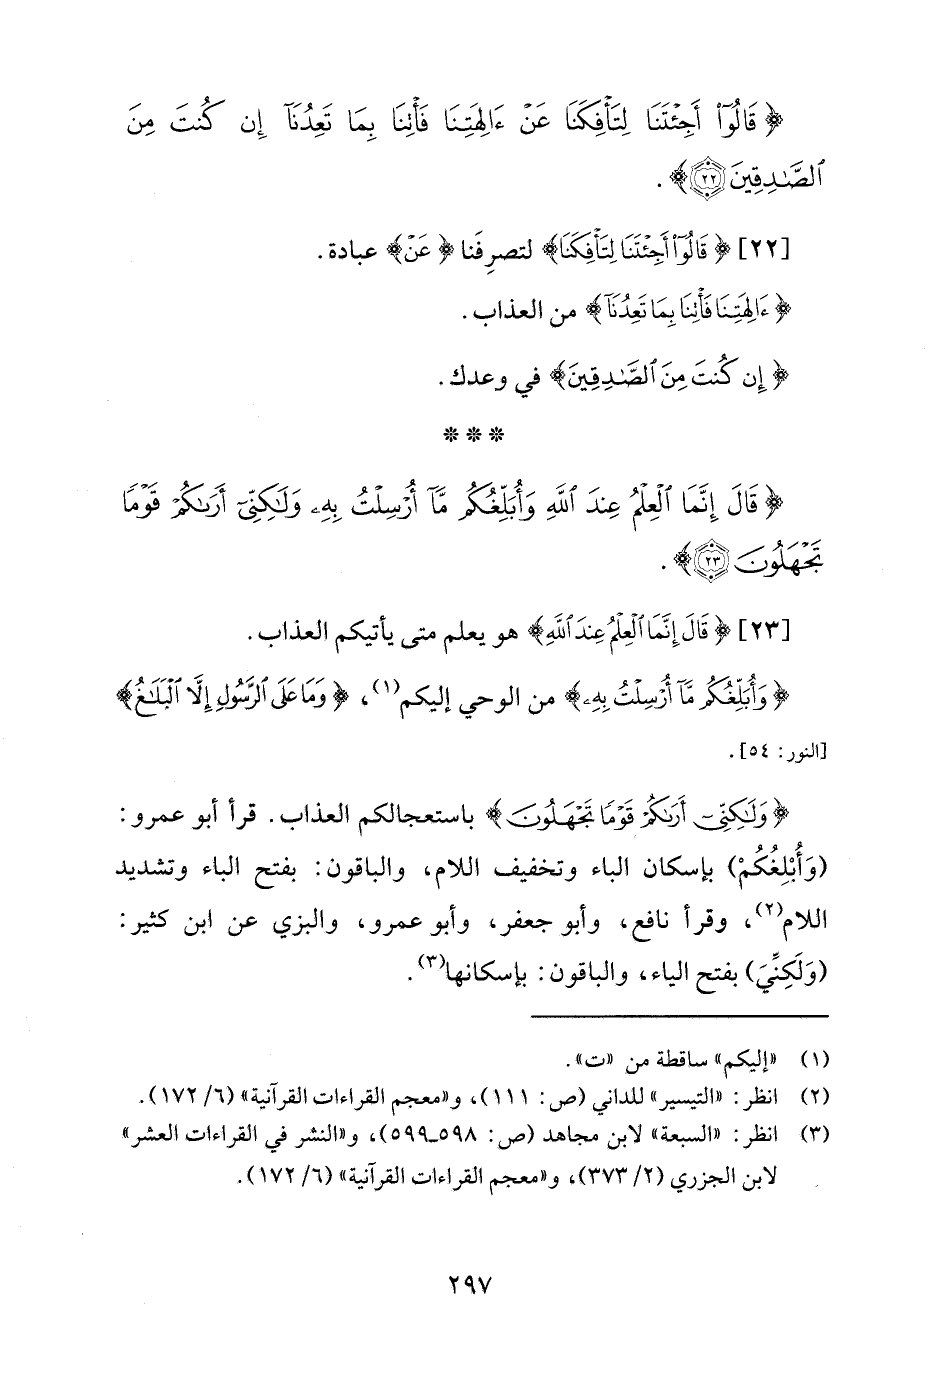 ﴿ قَالُوٓاْ أَجِئۡتَنَا لِتَأۡفِكَنَا عَنۡ ءَالِهَتِنَا فَأۡتِنَا بِمَا تَعِدُنَآ إِن كُنتَ مِنَ
ٱلصَّٰدِقِينَ ٢٢﴾ .
[٢٢] ﴿ قَالُوٓاْ أَجِئۡتَنَا لِتَأۡفِكَنَا﴾ لتصرِفَنا ﴿ عَنۡ﴾ عبادة .
﴿ ءَالِهَتِنَا فَأۡتِنَا بِمَا تَعِدُنَآ﴾ من العذاب .
﴿ إِن كُنتَ مِنَ ٱلصَّٰدِقِينَ﴾ في وعدك .
* * *
﴿ قَالَ إِنَّمَا ٱلۡعِلۡمُ عِندَ ٱللَّهِ وَأُبَلِّغُكُم مَّآ أُرۡسِلۡتُ بِهِۦ وَلَٰكِنِّيٓ أَرَىٰكُمۡ قَوۡمٗا
تَجۡهَلُونَ ٢٣﴾ .
[٢٣] ﴿ قَالَ إِنَّمَا ٱلۡعِلۡمُ عِندَ ٱللَّهِ﴾ هو يعلم متى يأتيكم العذاب .
﴿ وَأُبَلِّغُكُم مَّآ أُرۡسِلۡتُ بِهِۦ﴾ من الوحي إليكم(١)، ﴿ وَمَا عَلَى ٱلرَّسُولِ إِلَّا ٱلۡبَلَٰغُ﴾
[النور: ٥٤] .
﴿ وَلَٰكِنِّيٓ أَرَىٰكُمۡ قَوۡمٗا تَجۡهَلُونَ﴾ باستعجالكم العذاب. قرأ أبو عمرو :
(وَأُبْلِغُكُمْ) بإسكان الباء وتخفيف اللام، والباقون: بفتح الباء وتشديد
اللام(٢)، وقرأ نافع، وأبو جعفر، وأبو عمرو، والبزي عن ابن كثير :
(وَلَكِنِّيَ) بفتح الياء، والباقون: بإسكانها(٣) .
(١) «إليكم» ساقطة من «ت» .
(٢) انظر: «التيسير» للداني (ص: ١١١)، و«معجم القراءات القرآنية» (٦/ ١٧٢) .
(٣) انظر: «السبعة» لابن مجاهد (ص: ٥٩٨ـ٥٩٩)، و«النشر في القراءات العشر»
لابن الجزري (٢/ ٣٧٣)، و«معجم القراءات القرآنية» (٦/ ١٧٢) .
٢٩٧